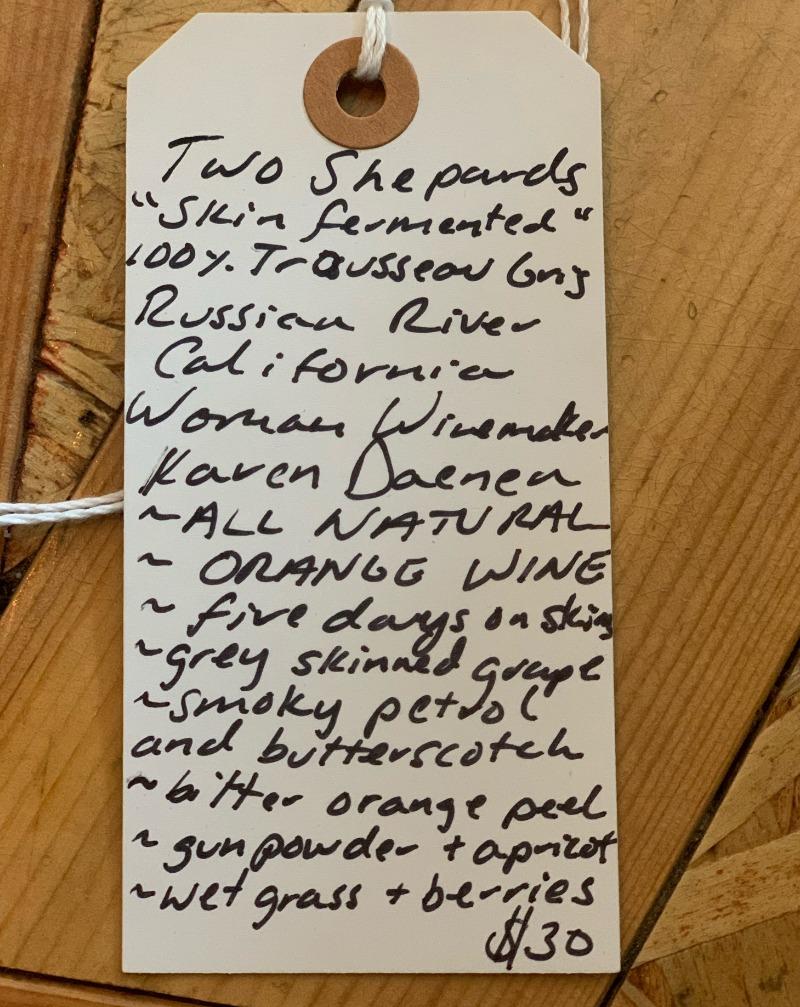 Two Shepards
"Skin fermented"
100%. Trousseau Gris
Russian River
California
Woman Winemaker
Karen Daenen
~ALL NATURAL
~ ORANGE WINE
~ five days on skins
~grey skinned grape
~smoky petrol
and butterscotch
~bitter orange peel
~ gunpowder + apricot
~wet grass + berries
$30